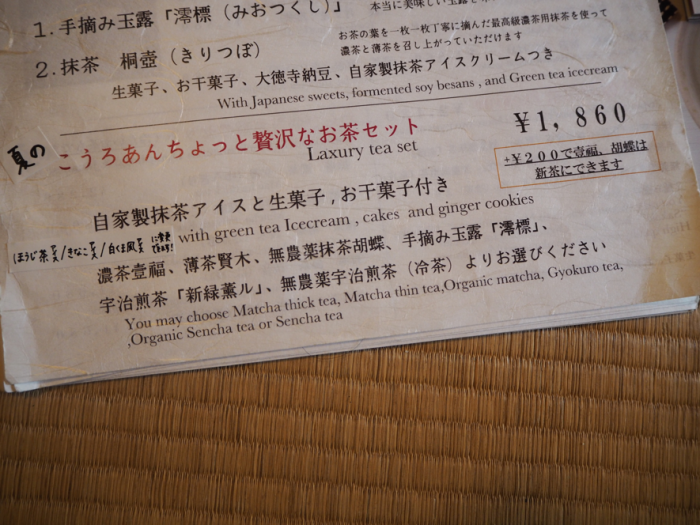 1. 手摘み玉露「澪標（みおつくし）」
お茶の葉を一枚一枚丁寧に摘んだ最高級濃茶用抹茶を使って
2. 抹茶　桐壺（きりつぼ）
濃茶と薄茶を召し上がっていただけます
生菓子、お干菓子、大徳寺納豆、自家製抹茶アイスクリームつき
With Japanese sweets, formented soy besans , and Green tea icecream
夏の
こうろあんちょっと贅沢なお茶セット
¥1,860
Laxury tea set
+¥200で壹福、胡蝶は
新茶にできます
自家製抹茶アイスと生菓子，お干菓子付き
with green tea Icecream , cakes and ginger cookies
ほうじ茶アイス/きなこアイス/白くま風アイス に変更できます!
濃茶壹福、薄茶賢木、無農薬抹茶胡蝶、手摘み玉露「澪標」、
宇治煎茶「新緑薫ル」、無農薬宇治煎茶（冷茶）よりお選びください
You may choose Matcha thick tea, Matcha thin tea,Organic matcha, Gyokuro tea,
,Organic Sencha tea or Sencha tea